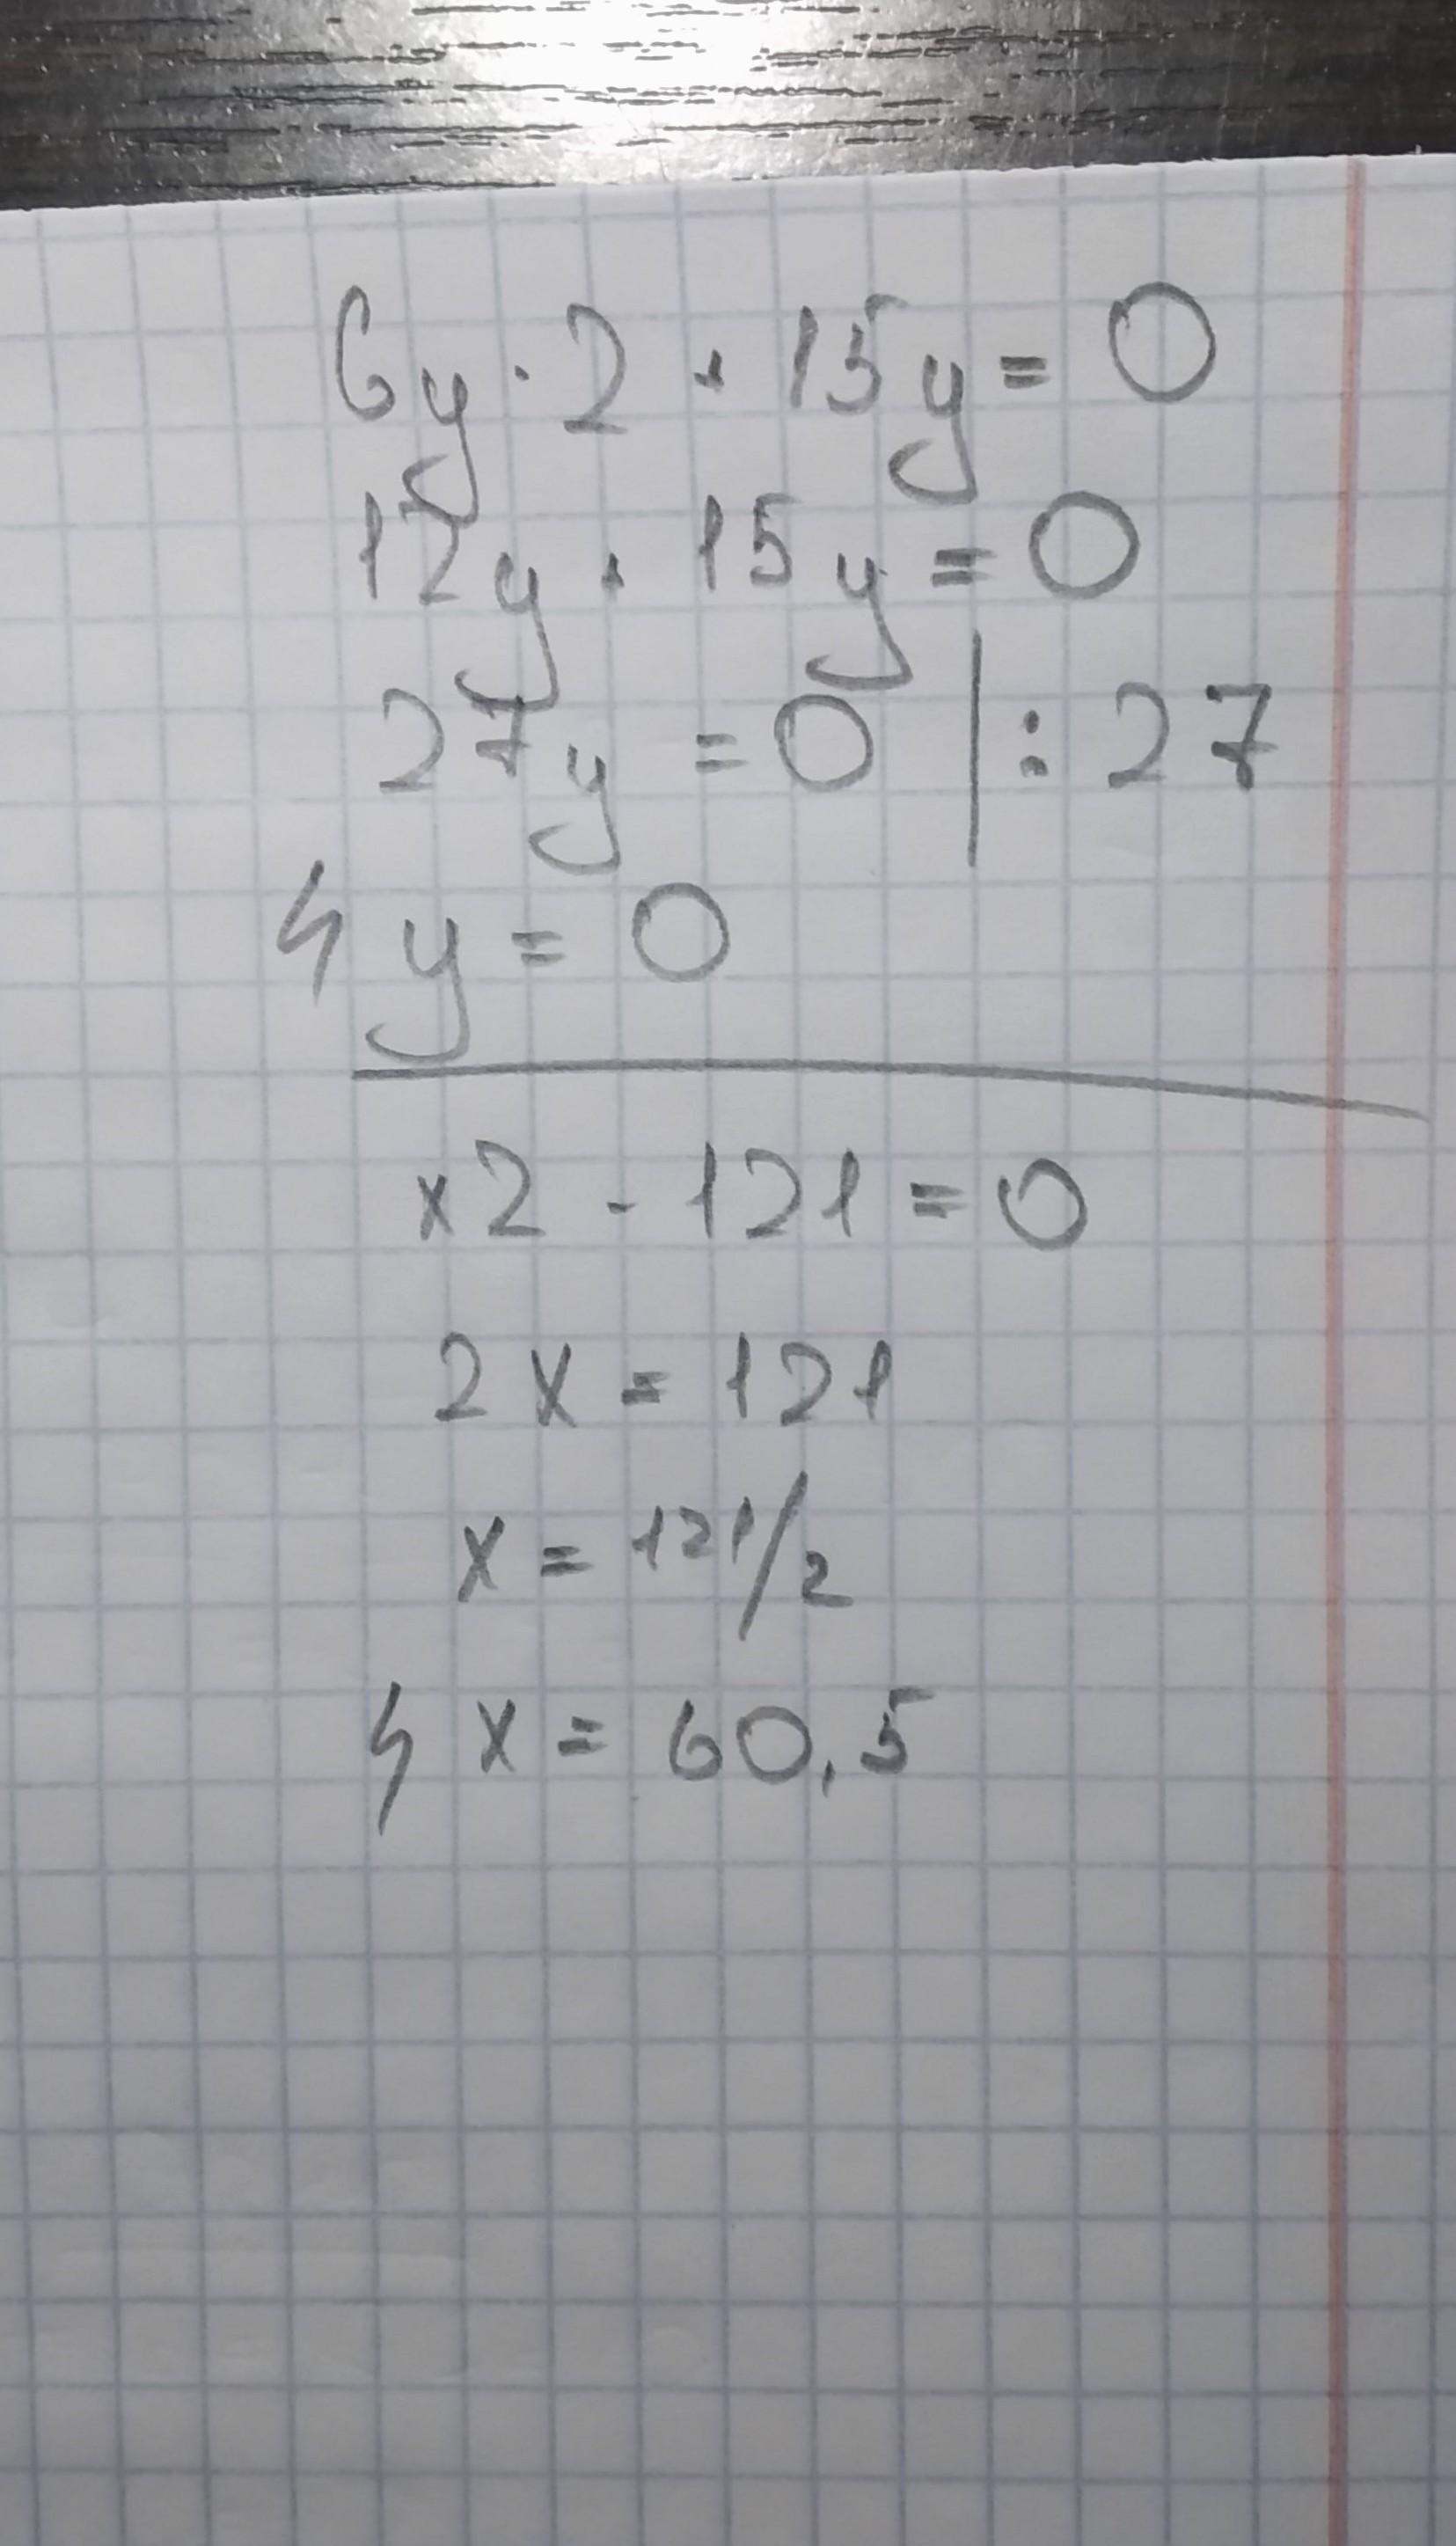 6y · 2 + 15y = 0
12y + 15y = 0
27y = 0 | : 27
y = 0
x2 - 121 = 0
2x = 121
x = 121/2
x = 60,5